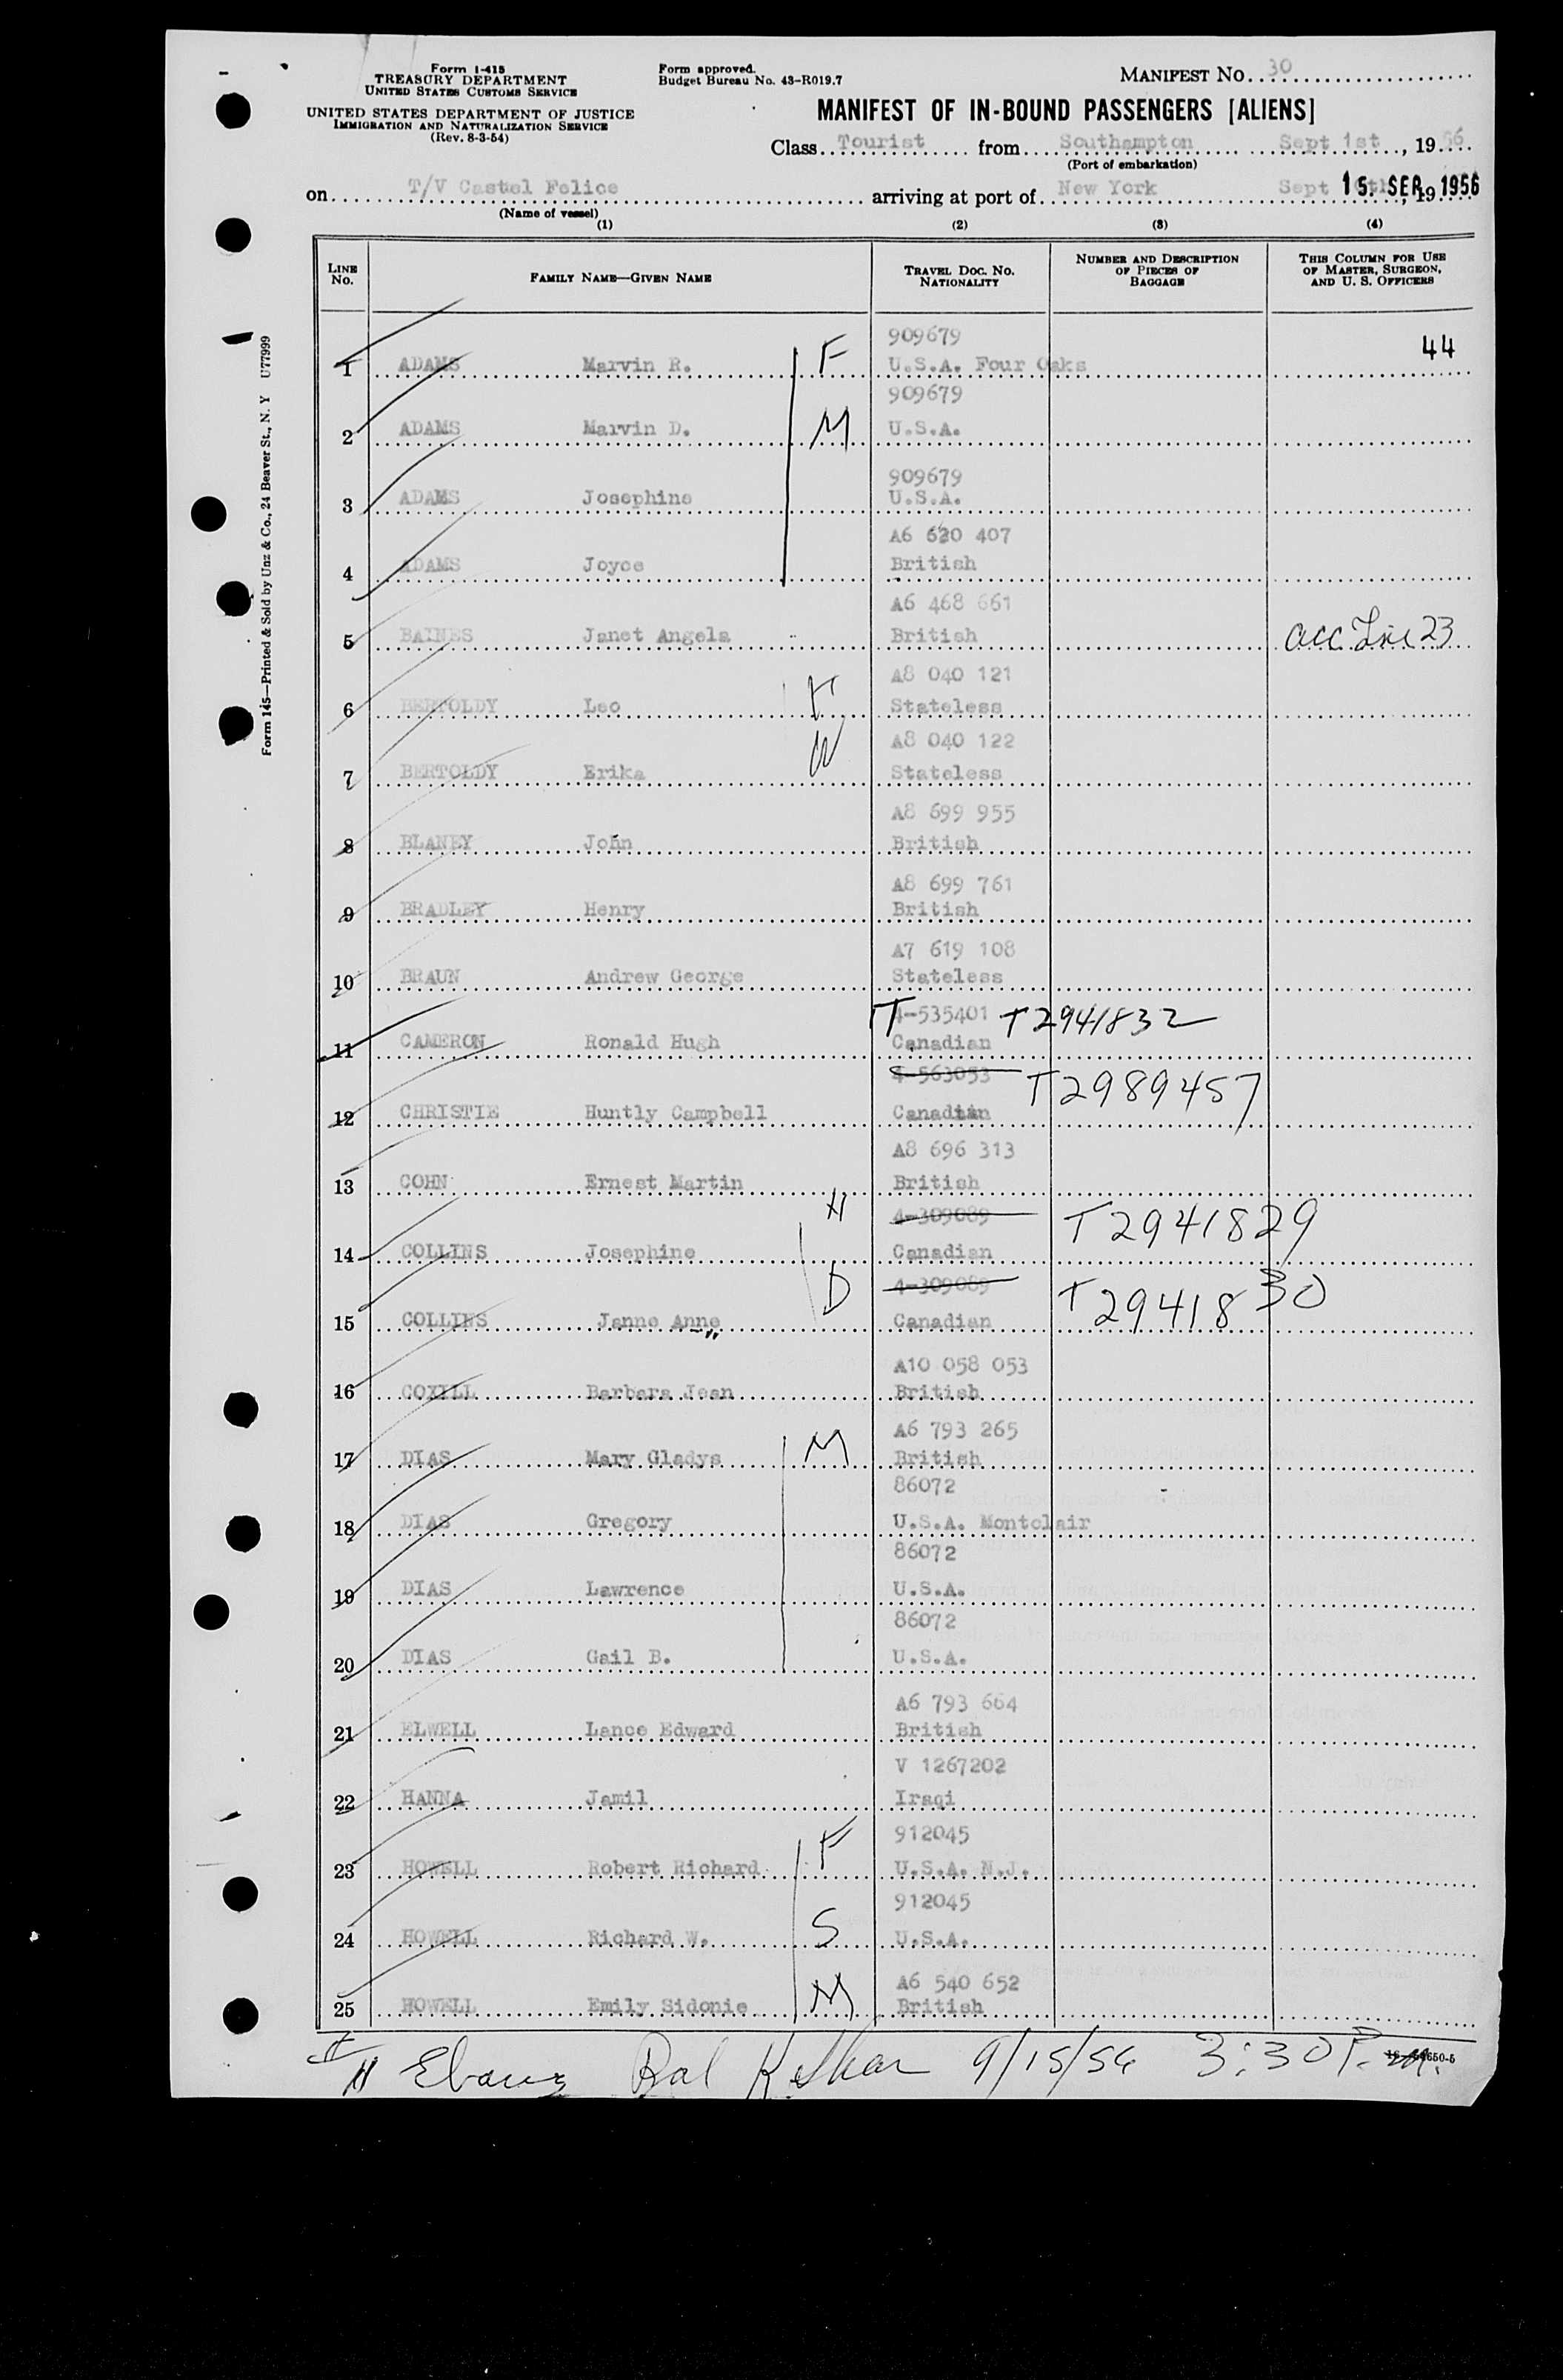 Form I-415
TREASURY DEPARTMENT
UNITED STATES CUSTOMS SERVICE
UNITED STATES DEPARTMENT OF JUSTICE
IMMIGRATION AND NATURALIZATION SERVICE
(Rev. 8-3-54)
Form approved.
Budget Bureau No. 43-R019.7
MANIFEST NO. 30
MANIFEST OF IN-BOUND PASSENGERS [ALIENS]
Class Tourist from Southampton Sept 1st, 1956
(Port of embarkation)
on T/V Castel Felice arriving at port of New York Sept 15. SEP. 1956
(Name of vessel)
(1) (2) (3) (4)
LINE NO.
FAMILY NAME—GIVEN NAME
TRAVEL DOC. NO. NATIONALITY
NUMBER AND DESCRIPTION OF PIECES OF BAGGAGE
THIS COLUMN FOR USE OF MASTER, SURGEON, AND U. S. OFFICERS
Form 145—Printed & Sold by Unz & Co., 24 Beaver St., N. Y U77999
909679 44
1 ADAMS Marvin R. F U.S.A. Four Oaks
909679
2 ADAMS Marvin D. M U.S.A.
909679
3 ADAMS Josephine U.S.A.
A6 620 407
4 ADAMS Joyce British
A6 468 661
5 BAINES Janet Angela British acc Line 23
A8 040 121
6 BERTOLDY Leo Stateless
A8 040 122
7 BERTOLDY Erika W Stateless
A8 699 955
8 BLANEY John British
A8 699 761
9 BRADLEY Henry British
A7 619 108
10 BRAUN Andrew George Stateless
T 4-535401 T2941832
11 CAMERON Ronald Hugh Canadian
4-563053 T2989457
12 CHRISTIE Huntly Campbell Canadian
A8 696 313
13 COHN Ernest Martin British
4-309089 T2941829
14 COLLINS Josephine Canadian
4-309089 T2941830
15 COLLINS Janne Anne D Canadian
A10 058 053
16 COXILL Barbara Jean British
A6 793 265
17 DIAS Mary Gladys M British
86072
18 DIAS Gregory U.S.A. Montclair
86072
19 DIAS Lawrence U.S.A.
86072
20 DIAS Gail B. U.S.A.
A6 793 664
21 ELWELL Lance Edward British
V 1267202
22 HANNA Jamil Iraqi
912045
23 HOWELL Robert Richard F U.S.A. N.J.
912045
24 HOWELL Richard W. S U.S.A.
A6 540 652
25 HOWELL Emily Sidonie M British
9/15/56 3:30 P.M.